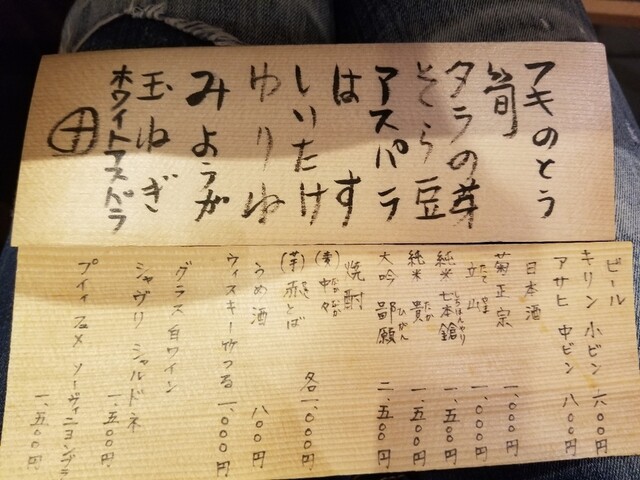 フキのとう
筍
タラの芽
そら豆
アスパラ
はす
しいたけ
ゆりね
みようが
玉ねぎ
ホワイトアスパラ
ビール
キリン 小ビン 六〇〇円
アサヒ 中ビン 八〇〇円
日本酒
菊正宗 一、〇〇〇円
立山 たてやま 一、〇〇〇円
純米 七本鎗 しちほんやり 一、五〇〇円
純米 貴 たか 一、五〇〇円
大吟 鄙願 ひがん 二、五〇〇円
焼酎
(麦)
(芋) 赤とば 各一、〇〇〇円
うめ酒 八〇〇円
ウィスキー 竹つる 一、〇〇〇円
グラス白ワイン
シャブリ シャルドネ 一、五〇〇円
プイィ フュメ ソーヴィニヨンブラ 一、五〇〇円